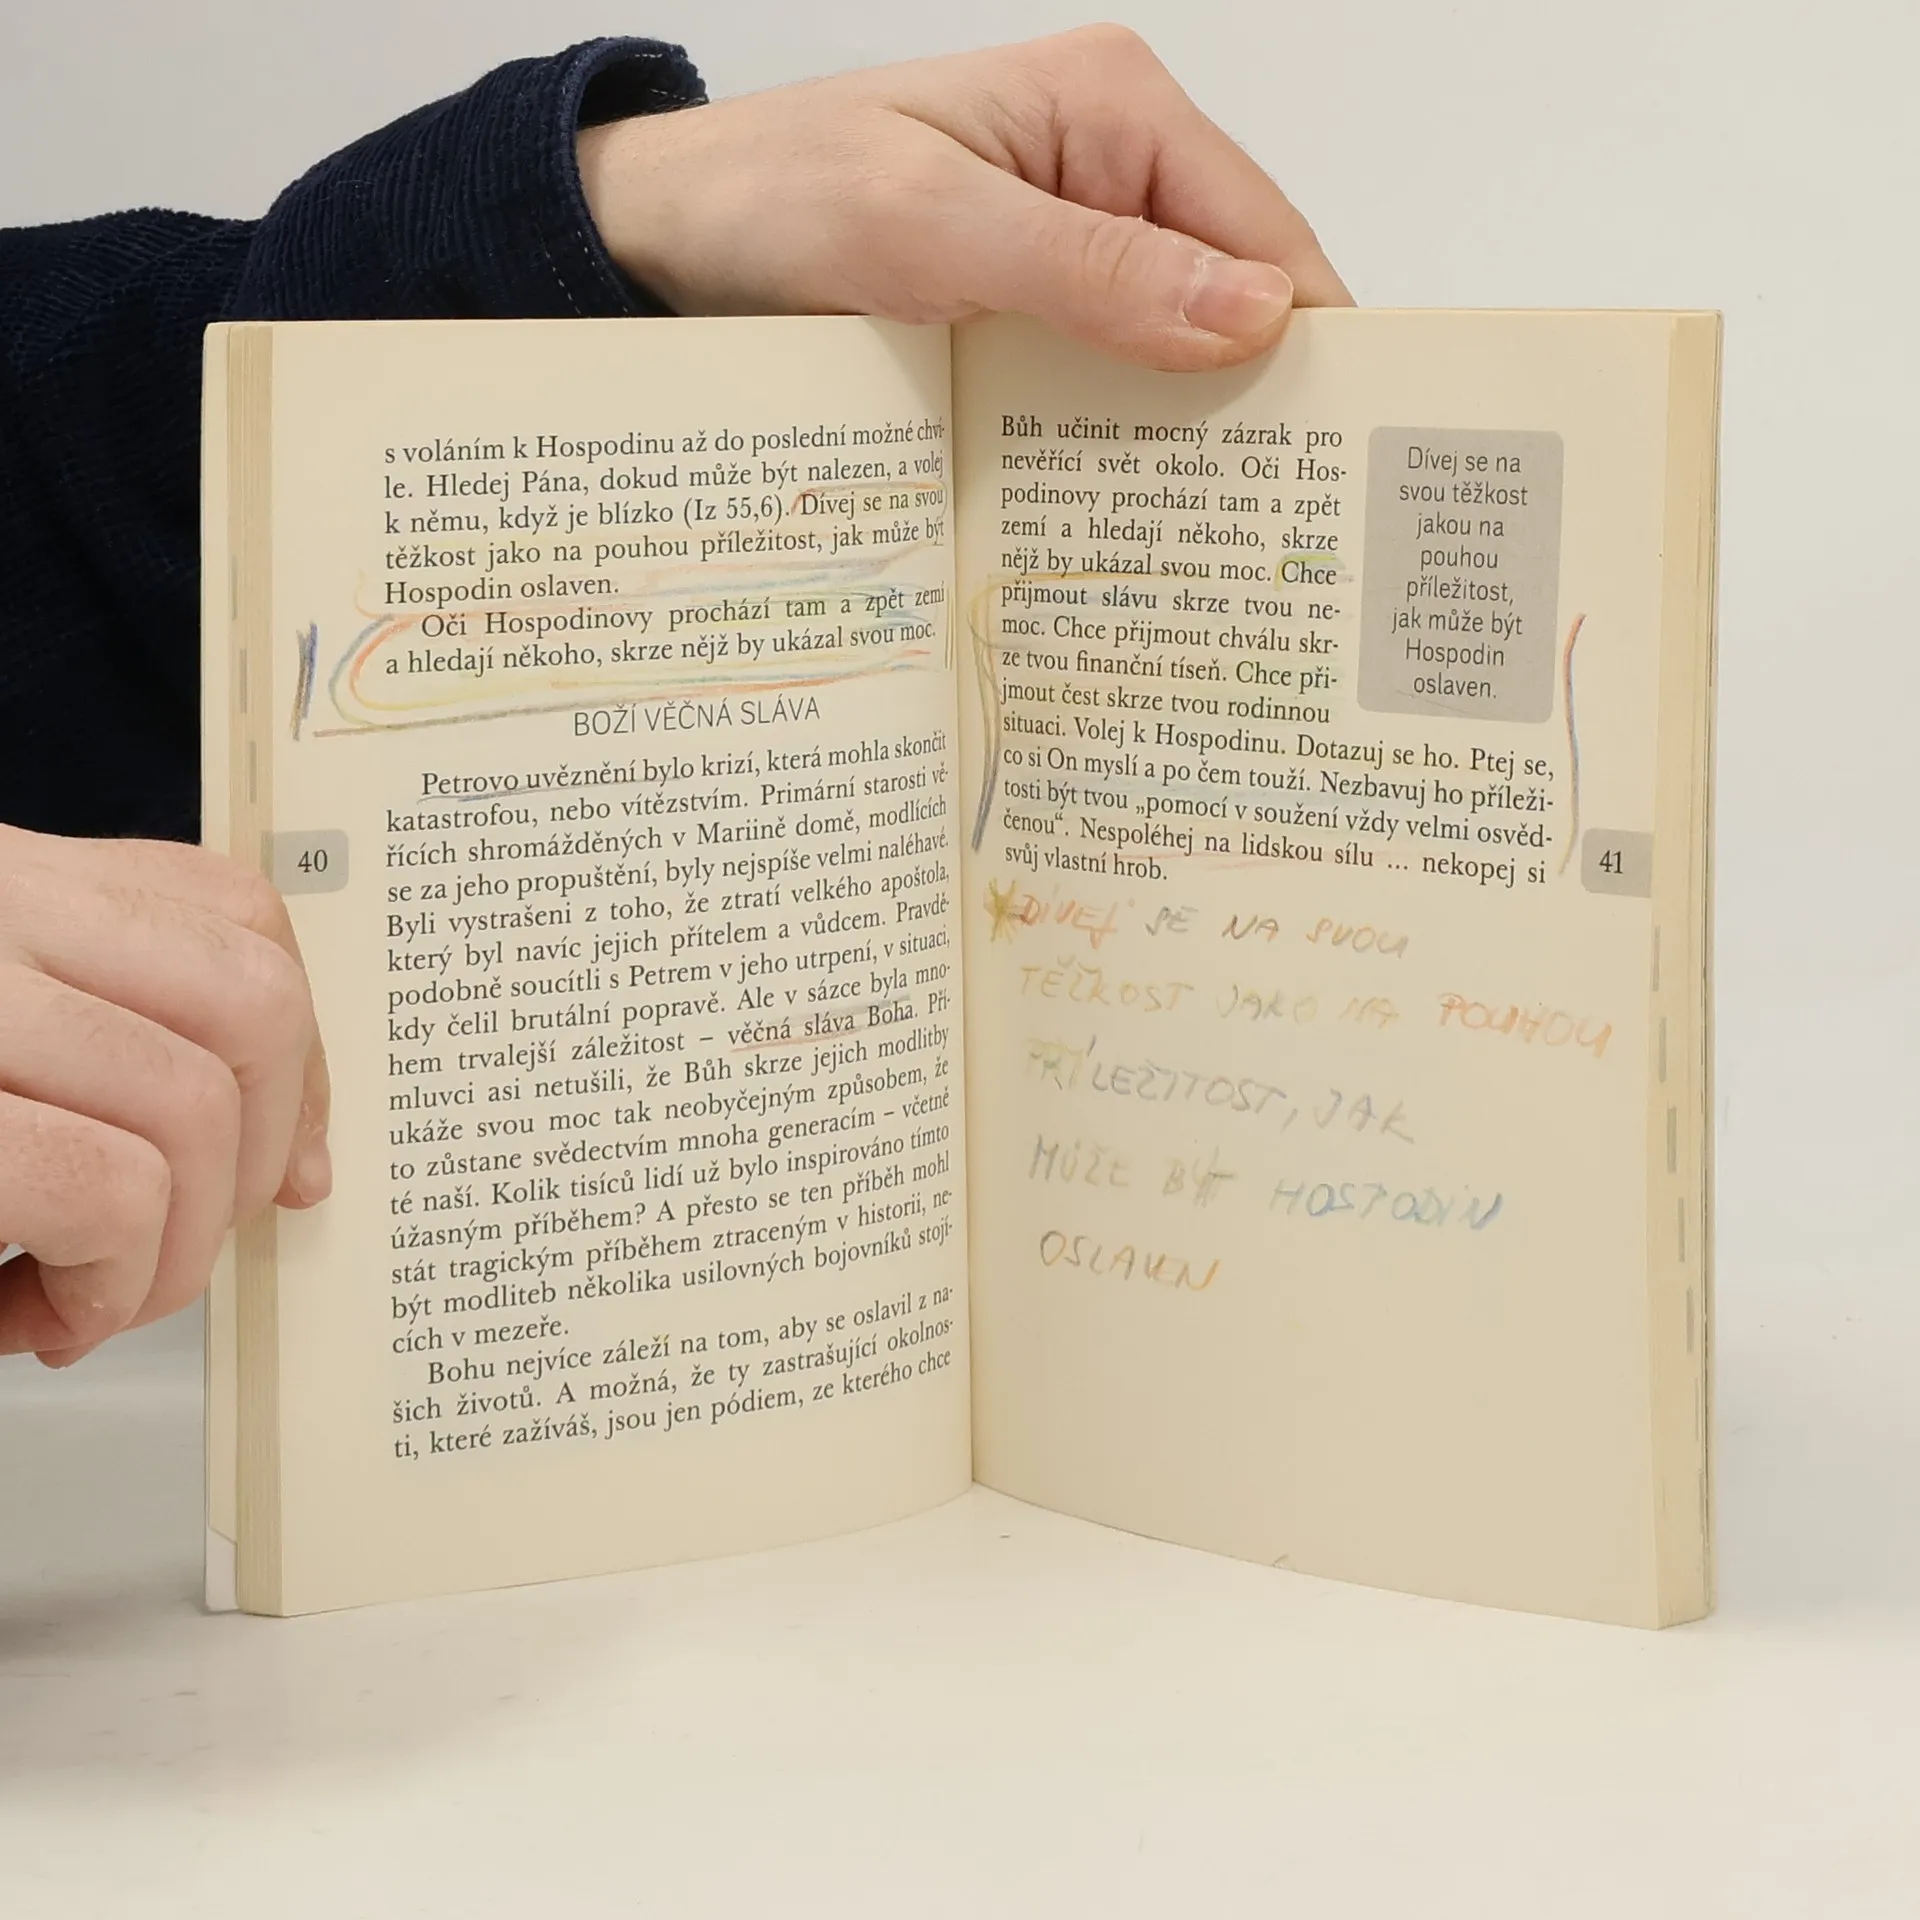 s voláním k Hospodinu až do poslední možné chví-
le. Hledej Pána, dokud může být nalezen, a volej
k němu, když je blízko (Iz 55,6). Dívej se na svou
těžkost jako na pouhou příležitost, jak může být
Hospodin oslaven.
Oči Hospodinovy prochází tam a zpět zemí
a hledají někoho, skrze nějž by ukázal svou moc.
BOŽÍ VĚČNÁ SLÁVA
Petrovo uvěznění bylo krizí, která mohla skončit
katastrofou, nebo vítězstvím. Primární starosti vě-
řících shromážděných v Mariině domě, modlících
se za jeho propuštění, byly nejspíše velmi naléhavé.
Byli vystrašeni z toho, že ztratí velkého apoštola,
který byl navíc jejich přítelem a vůdcem. Pravdě-
podobně soucítli s Petrem v jeho utrpení, v situaci,
kdy čelil brutální popravě. Ale v sázce byla mno-
hem trvalejší záležitost – věčná sláva Boha. Pří-
mluvci asi netušili, že Bůh skrze jejich modlitby
ukáže svou moc tak neobyčejným způsobem, že
to zůstane svědectvím mnoha generacím – včetně
té naší. Kolik tisíců lidí už bylo inspirováno tímto
úžasným příběhem? A přesto se ten příběh mohl
stát tragickým příběhem ztraceným v historii, ne-
být modliteb několika usilovných bojovníků stojí-
cích v mezeře.
Bohu nejvíce záleží na tom, aby se oslavil z na-
šich životů. A možná, že ty zastrašující okolnos-
ti, které zažíváš, jsou jen pódiem, ze kterého chce
40
Bůh učinit mocný zázrak pro
nevěřící svět okolo. Oči Hos-
podinovy prochází tam a zpět
zemí a hledají někoho, skrze
nějž by ukázal svou moc. Chce
přijmout slávu skrze tvou ne-
moc. Chce přijmout chválu skr-
ze tvou finanční tíseň. Chce při-
jmout čest skrze tvou rodinnou
situaci. Volej k Hospodinu. Dotazuj se ho. Ptej se,
co si On myslí a po čem touží. Nezbavuj ho příleži-
tosti být tvou „pomocí v soužení vždy velmi osvěd-
čenou“. Nespoléhej na lidskou sílu ... nekopej si
svůj vlastní hrob.
Dívej se na
svou těžkost
jakou na
pouhou
příležitost,
jak může být
Hospodin
oslaven.
41
DÍVEJ SE NA SVOU
TĚŽKOST JAKO NA POUHOU
PŘÍLEŽITOST, JAK
MŮŽE BÝT HOSPODIN
OSLAVEN